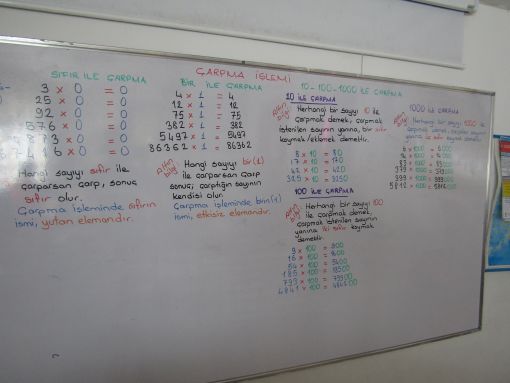 ÇARPMA İŞLEMİ
SIFIR İLE ÇARPMA
3 x 0 = 0
25 x 0 = 0
92 x 0 = 0
576 x 0 = 0
x 0 = 0
67416 x 0 = 0
Hangi sayıyı sıfır ile
çarparsan çarp, sonuç
sıfır olur.
Çarpma işleminde sıfırın
ismi, yutan elemandır.
BİR İLE ÇARPMA
4 x 1 = 4
12 x 1 = 12
75 x 1 = 75
382 x 1 = 382
5497 x 1 = 5497
86362 x 1 = 86362
Altın Bilgi
Hangi sayıyı bir(1)
ile çarparsan çarp
sonuç, çarptığın sayının
kendisi olur.
Çarpma işleminde birin(1)
ismi, etkisiz elemandır.
10-100-1000 İLE ÇARPMA
10 İLE ÇARPMA
Altın Bilgi
Herhangi bir sayıyı 10 ile
çarpmak demek, çarpmak
istenilen sayının yanına, bir sıfır
koymak/eklemek demektir.
8 x 10 = 80
17 x 10 = 170
42 x 10 = 420
325 x 10 = 3250
100 İLE ÇARPMA
Altın Bilgi
Herhangi bir sayıyı 100
ile çarpmak demek,
çarpmak istenilen sayının
yanına iki sıfır koymak
demektir.
9 x 100 = 900
16 x 100 = 1600
54 x 100 = 5400
185 x 100 = 18500
793 x 100 = 79300
4841 x 100 = 484100
1000 İLE ÇARPMA
Herhangi bir sayıyı 1000 ile
çarpmak demek, çarpılan sayının
yanına üç sıfır koymak demektir.
6 x 1000 = 6000
x 1000 =
x 1000 =
999 x 1000 = 999000
5812 x 1000 =